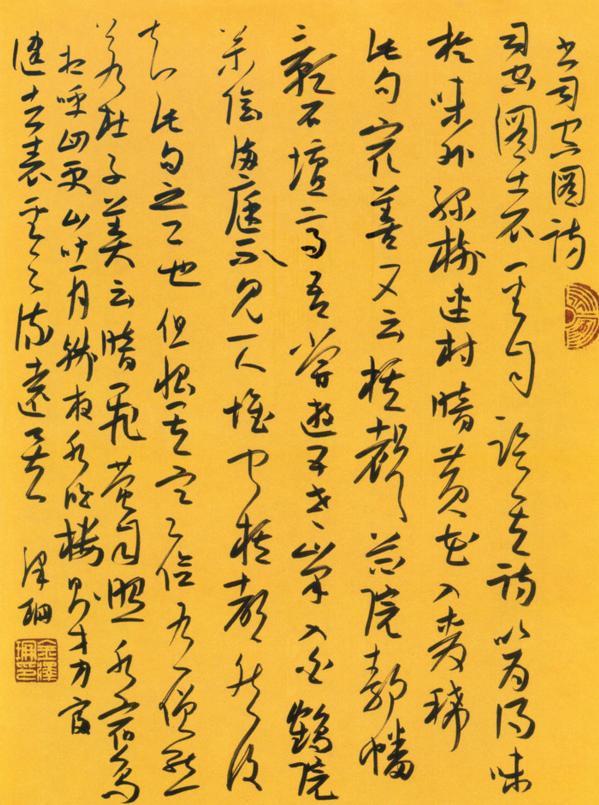 书司空圖詩
司空圖表聖自論其詩以为得味
於味外绿樹連村暗黄花入麦稀
此句最善又云棋聲花院静幡
影石壇高吾嘗遊五老峯入白鶴院
松陰满庭不見一人惟闻棋聲然後
知此句之工也但恨其寒儉有僧態
若杜子美云暗飛萤自照水宿鸟
相呼四更山吐月殘夜水明樓则才力富
健去表聖之流遠矣
泽珊